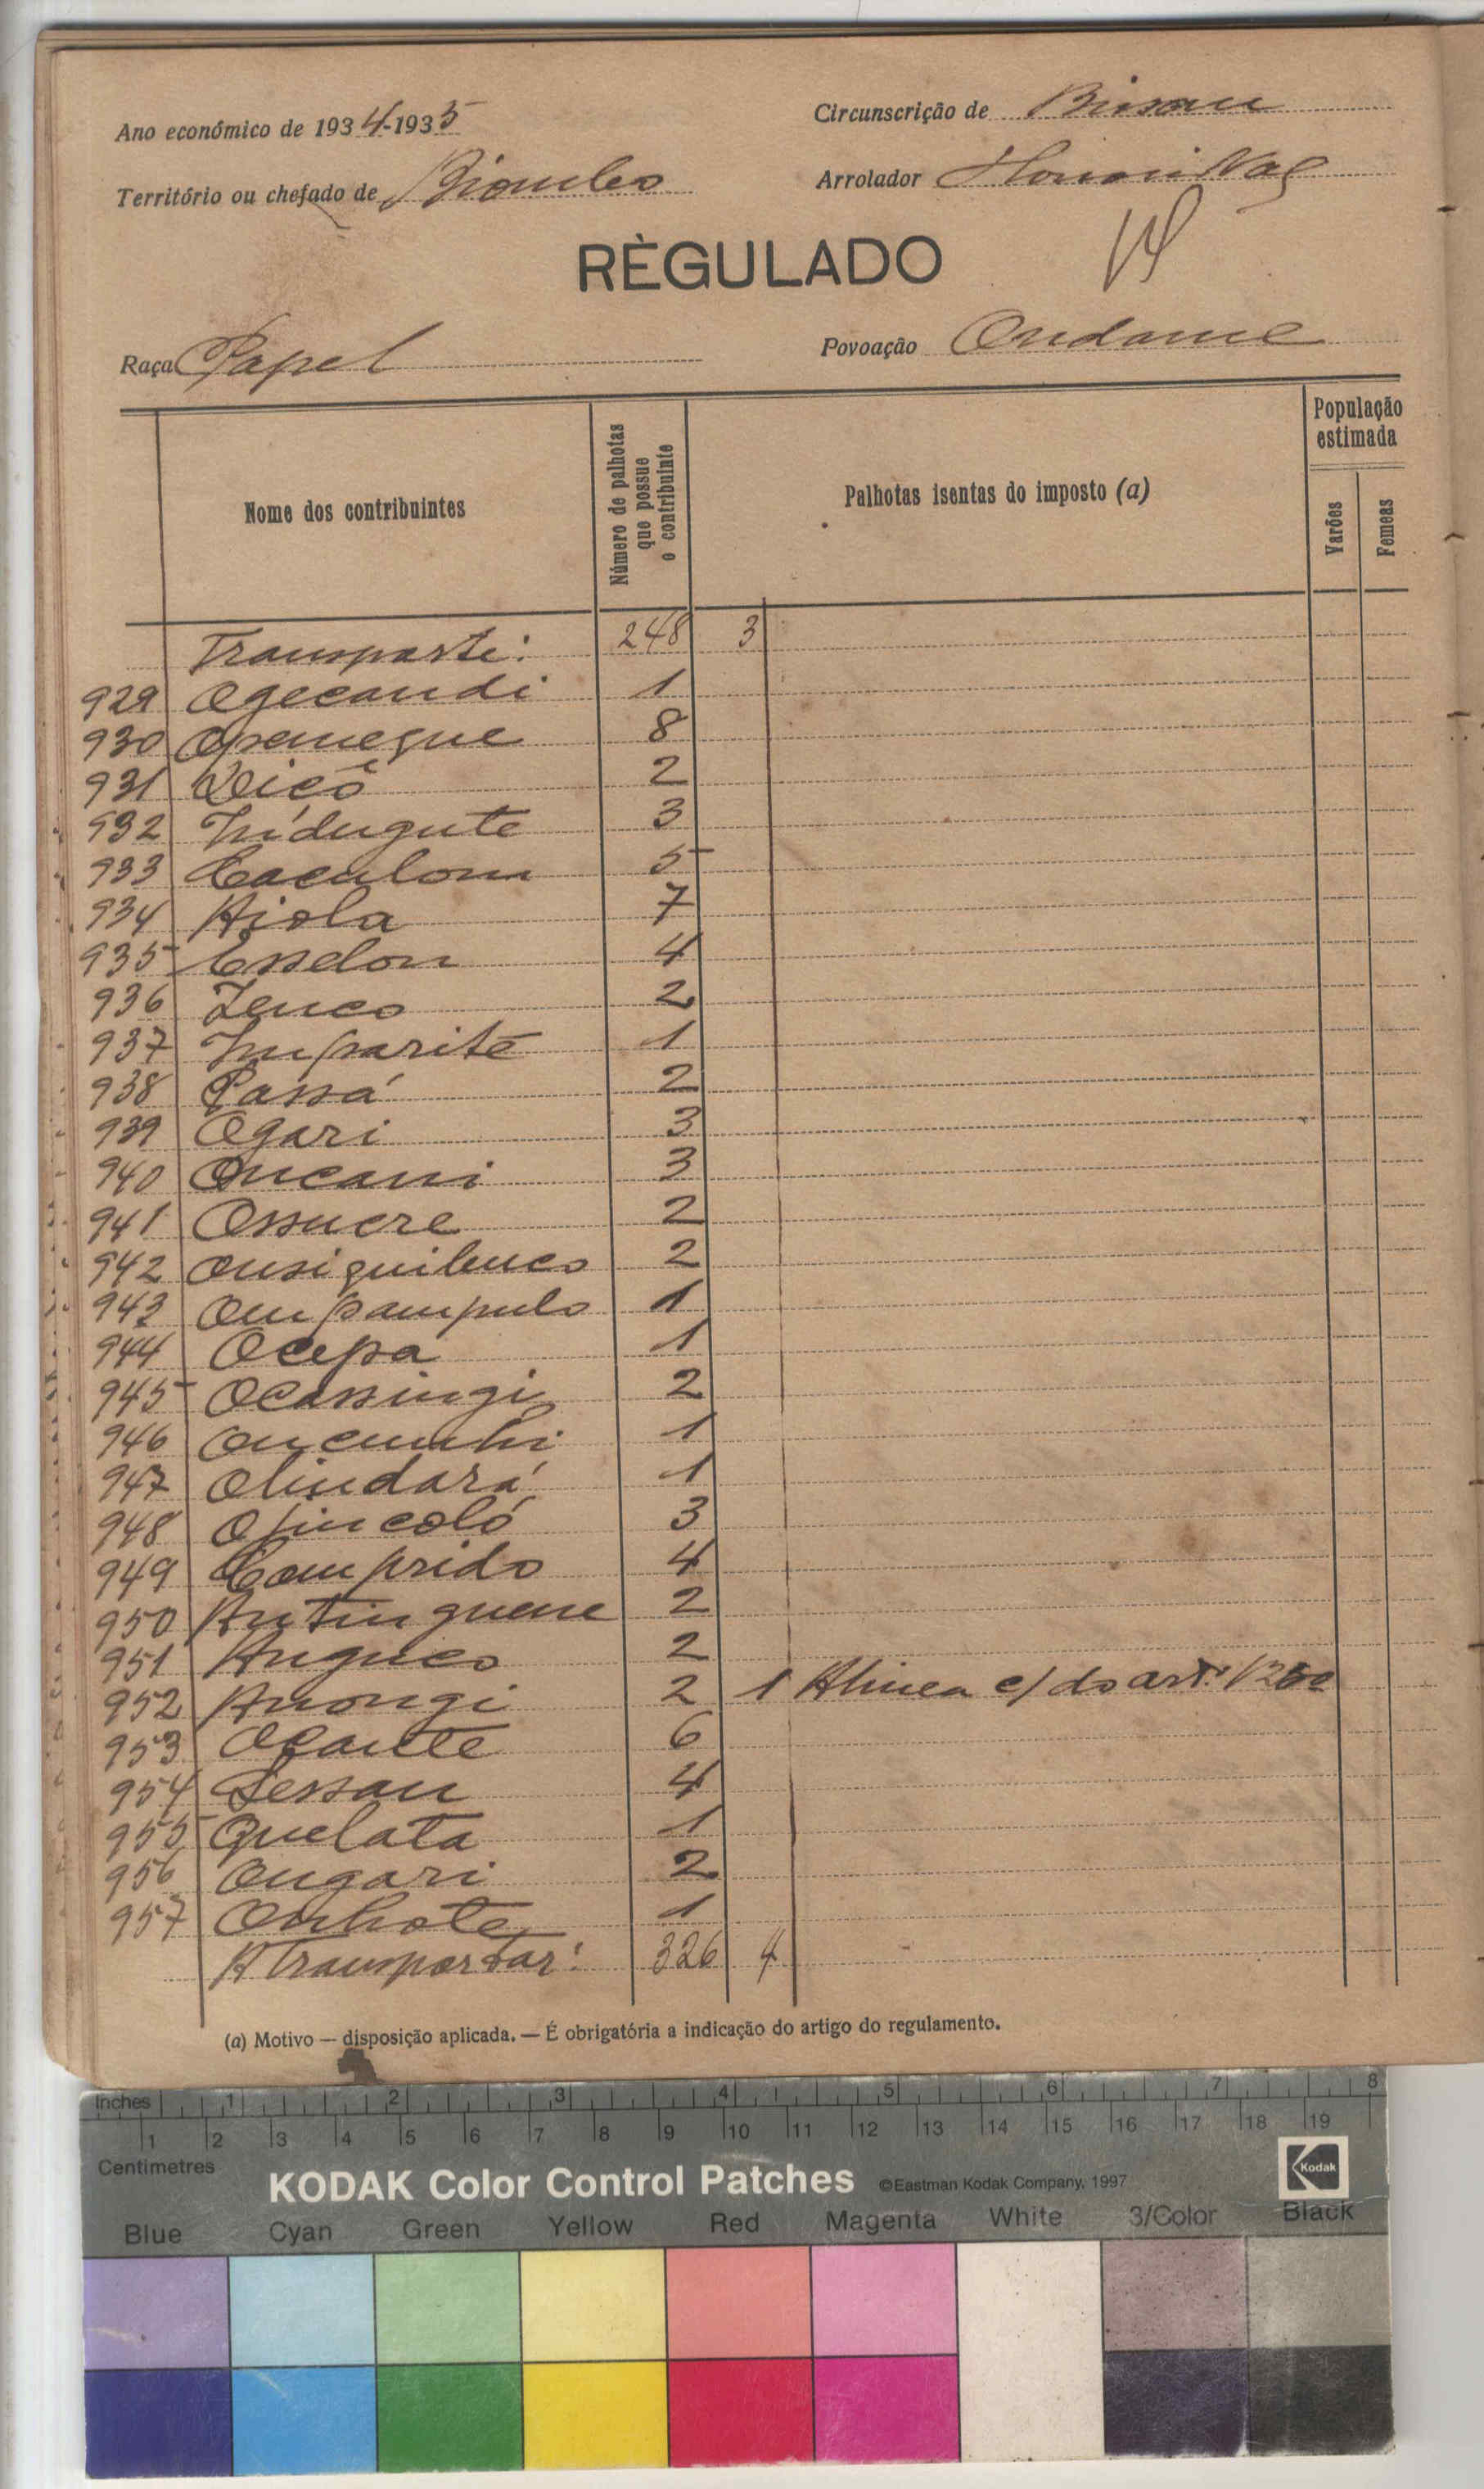 Ano económico de 1934-1935
Circunscrição de Bissau
Território ou chefado de Biombo
Arrolador
RÈGULADO
Raça Papel
Povoação Ondame
Nome dos contribuintes
Número de palhotas que possue o contribuinte
Palhotas isentas do imposto (a)
População estimada
Varões
Femeas
Transporte: 248 3
929 Ogecandi 1
930 8
931 2
932 3
933 5
934 Aiola 7
935 4
936 2
937 Imparité 1
938 Passá 2
939 Ogari 3
940 Oncani 3
941 Ossucre 2
942 2
943 Ompampulo 1
944 Ocepa 1
945 Ocassingi 2
946 1
947 Olindará 1
948 3
949 Comprido 4
950 2
951 2
952 Anongi 2 1 Alinea c) do artº
953 6
954 4
955 Quelata 1
956 Ongari 2
957 Onhote 1
A Transportar: 326 4
(a) Motivo — disposição aplicada. — É obrigatória a indicação do artigo do regulamento.
Inches 1 2 3 4 5 6 7 8
1 2 3 4 5 6 7 8 9 10 11 12 13 14 15 16 17 18 19
Centimetres
KODAK Color Control Patches ©Eastman Kodak Company, 1997 Kodak
Blue Cyan Green Yellow Red Magenta White 3/Color Black